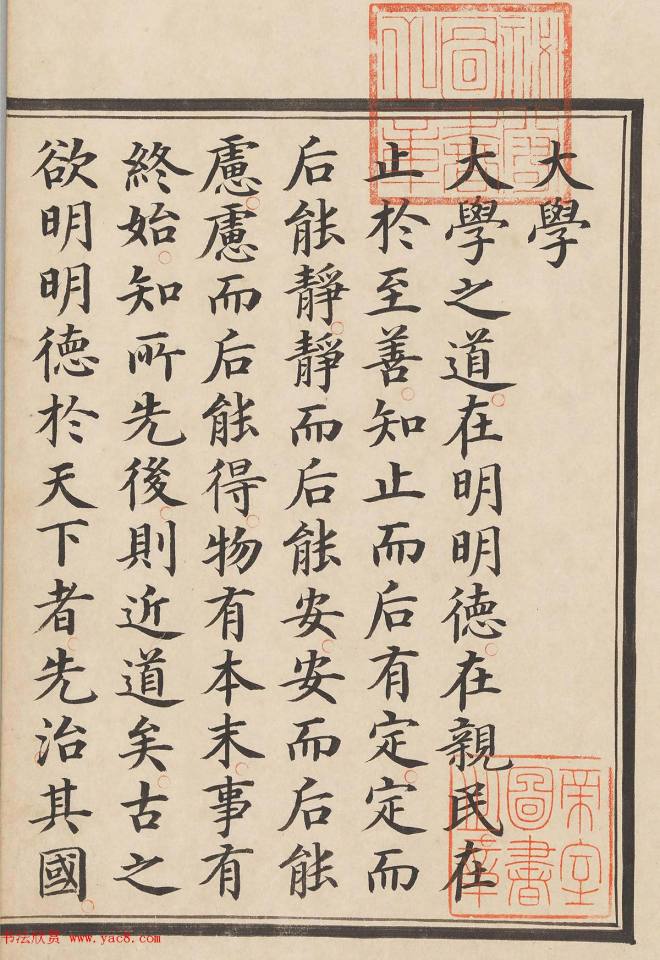 大學
大學之道在明明德在親民在
止於至善知止而后有定定而
后能靜靜而后能安安而后能
慮慮而后能得物有本末事有
終始知所先後則近道矣古之
欲明明德於天下者先治其國
书法欣赏 www.yac8.com